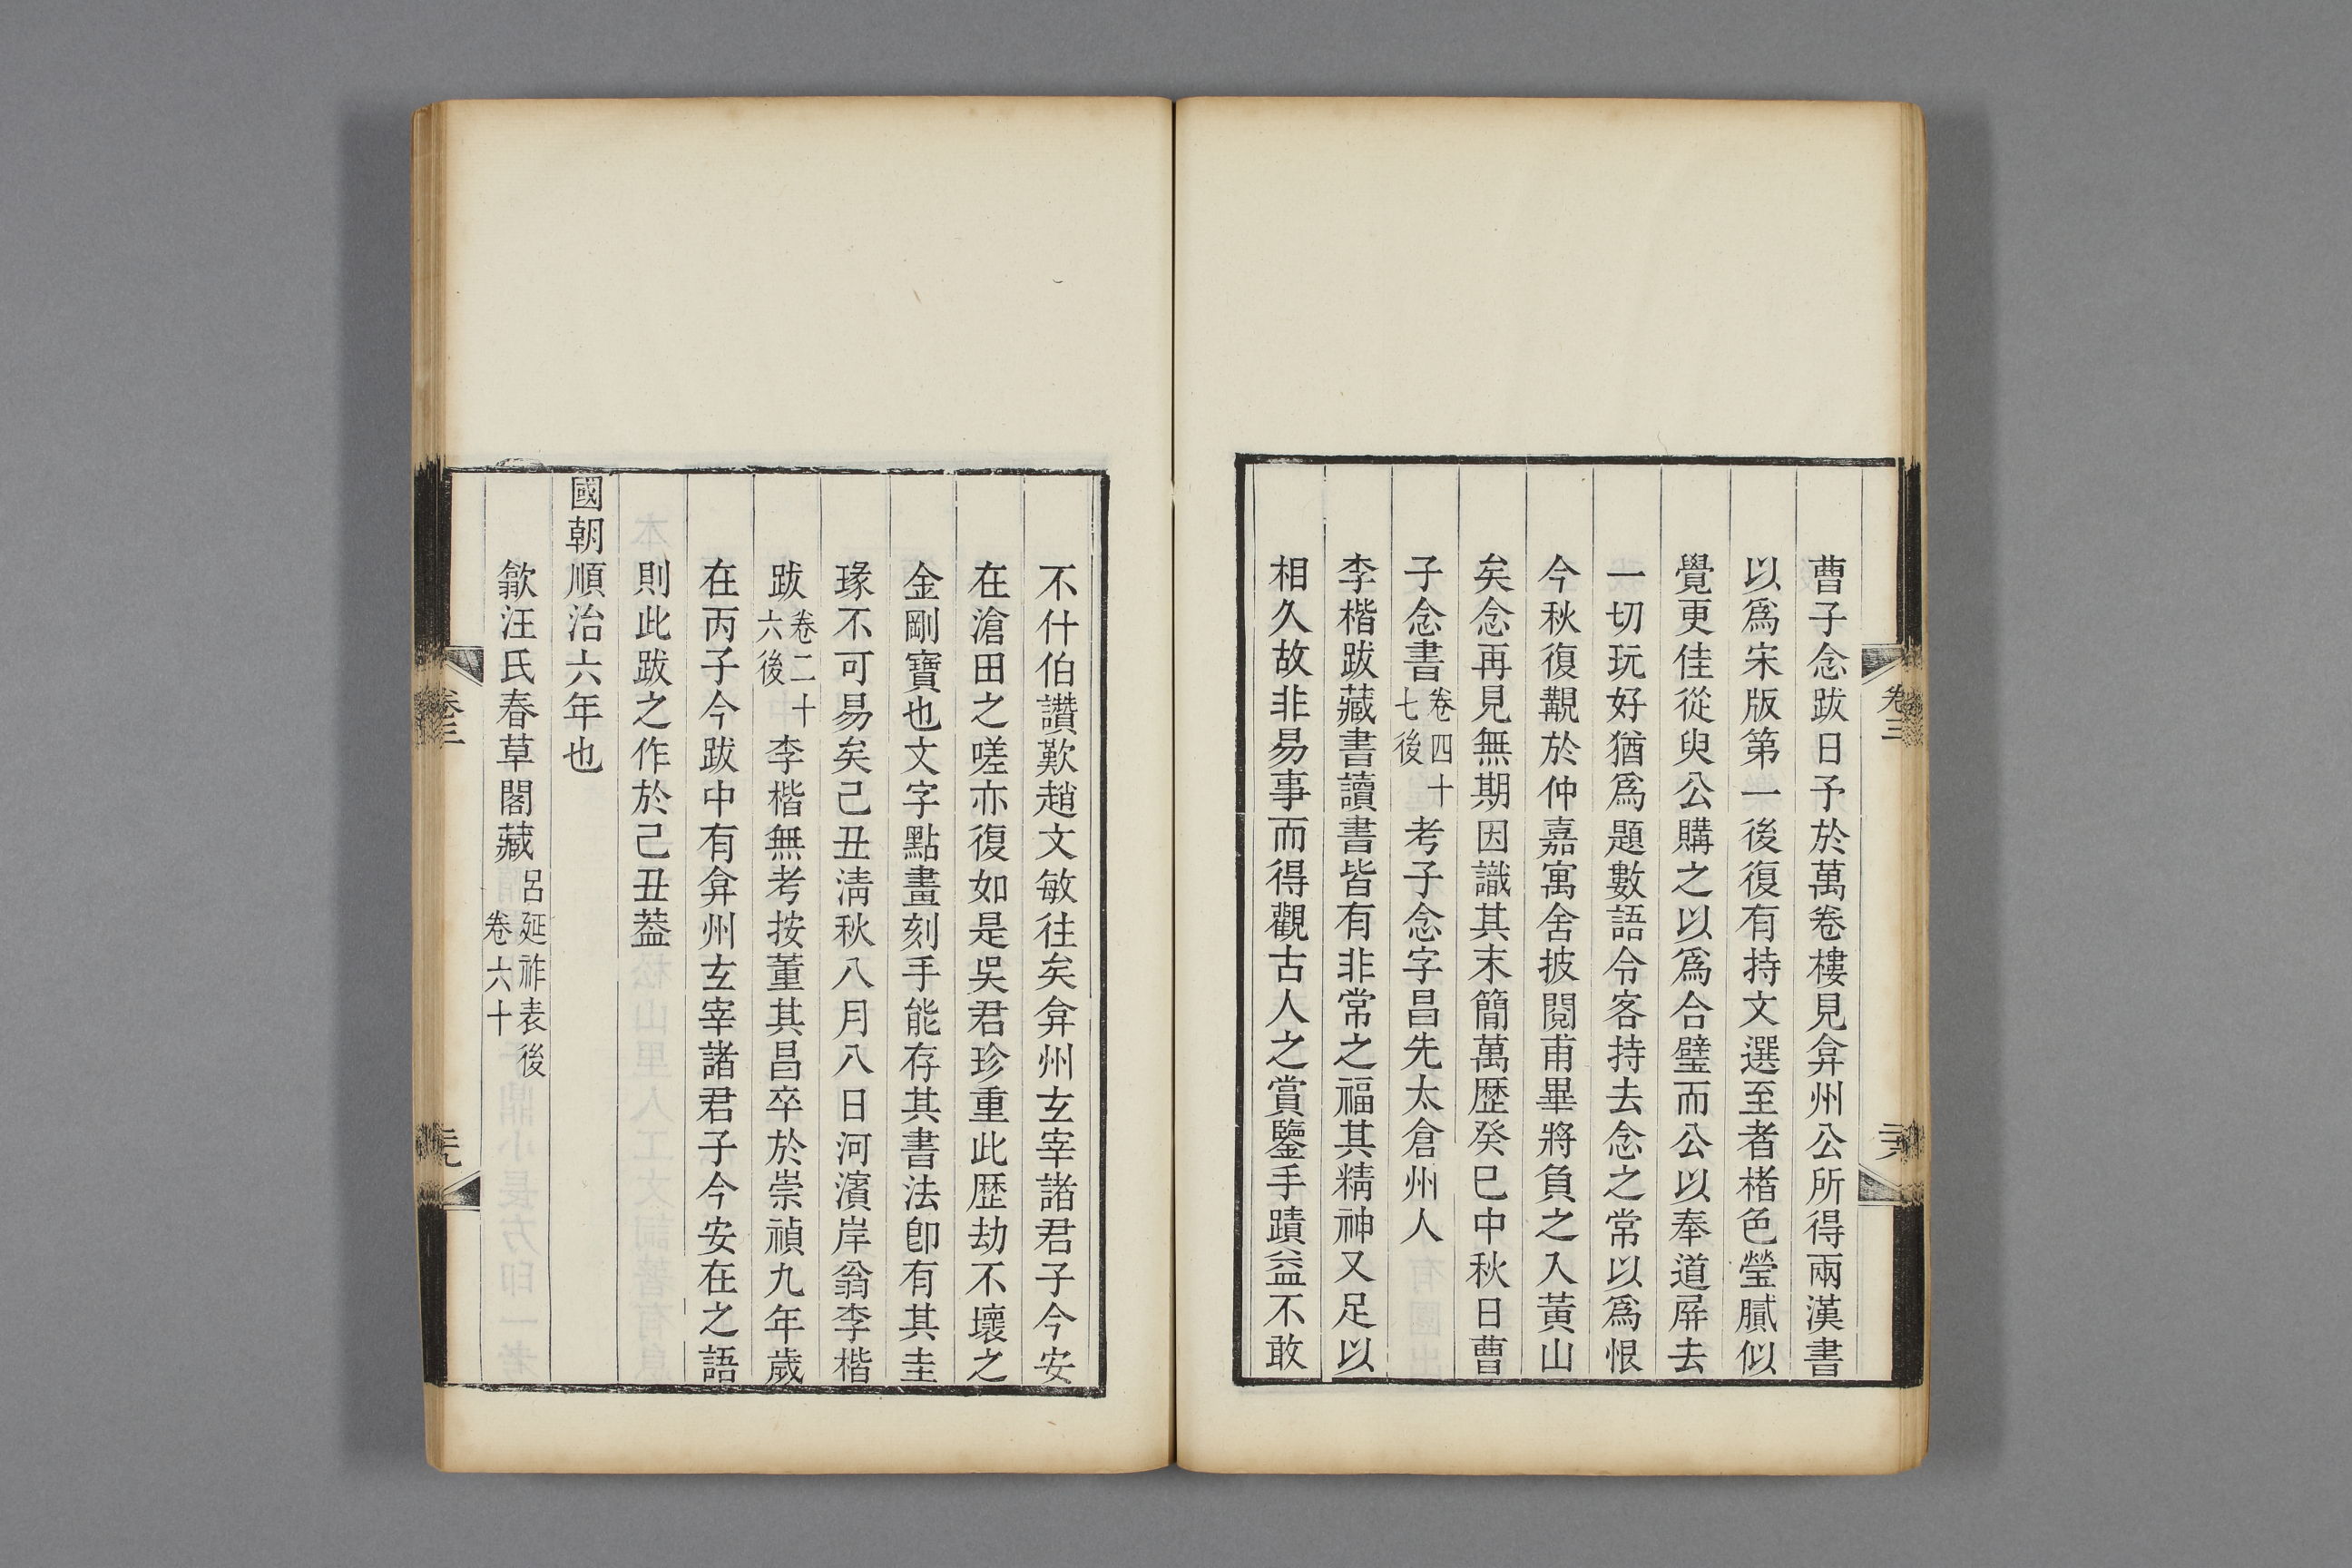 曹子念跋日予於萬卷樓見弇州公所得兩漢書
以爲宋版第一後復有持文選至者楮色瑩膩似
覺更佳從臾公購之以爲合璧而公以奉道屏去
一切玩好猶爲題數語令客持去念之常以爲恨
今秋復覯於仲嘉寓舍披閱甫畢將負之入黃山
矣念再見無期因識其末簡萬歷癸巳中秋日曹
子念書卷四十七後考子念字昌先太倉州人
李楷跋藏書讀書皆有非常之福其精神又足以
相久故非易事而得觀古人之賞鑒手蹟益不敢
卷三
二十八
不什伯讚歎趙文敏往矣弇州玄宰諸君子今安
在滄田之嗟亦復如是吳君珍重此歷劫不壞之
金剛寶也文字點畫刻手能存其書法卽有其圭
瑑不可易矣己丑淸秋八月八日河濱岸翁李楷
跋卷二十六後李楷無考按董其昌卒於崇禎九年歲
在丙子今跋中有弇州玄宰諸君子今安在之語
則此跋之作於己丑葢
國朝順治六年也
歙汪氏春草閣藏呂延祚表後卷六十
卷三
二十九